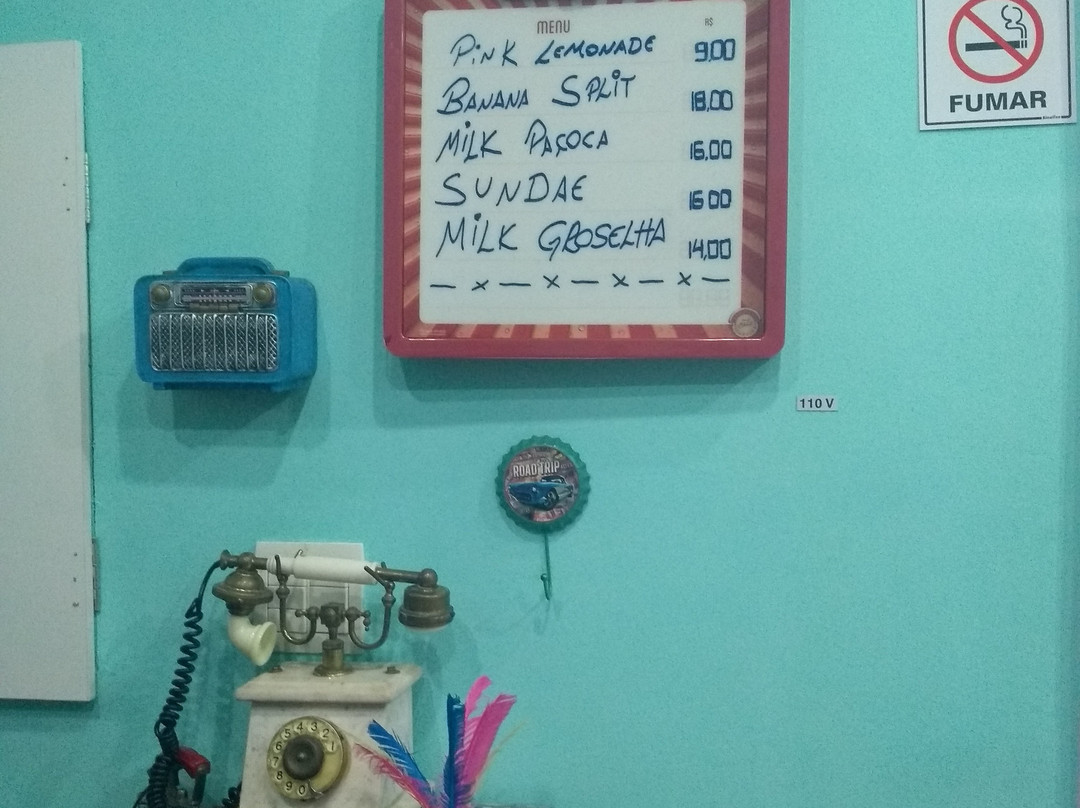 MENU R$
PiNK LEMONADE 9,00
BANANA SPLiT 18,00
MiLK PAÇOCA 16,00
SUNDAE 16 00
MiLK GROSELHA 14,00
FUMAR
110 V
ROAD TRIP
1
2
3
4
5
6
7
8
9
0